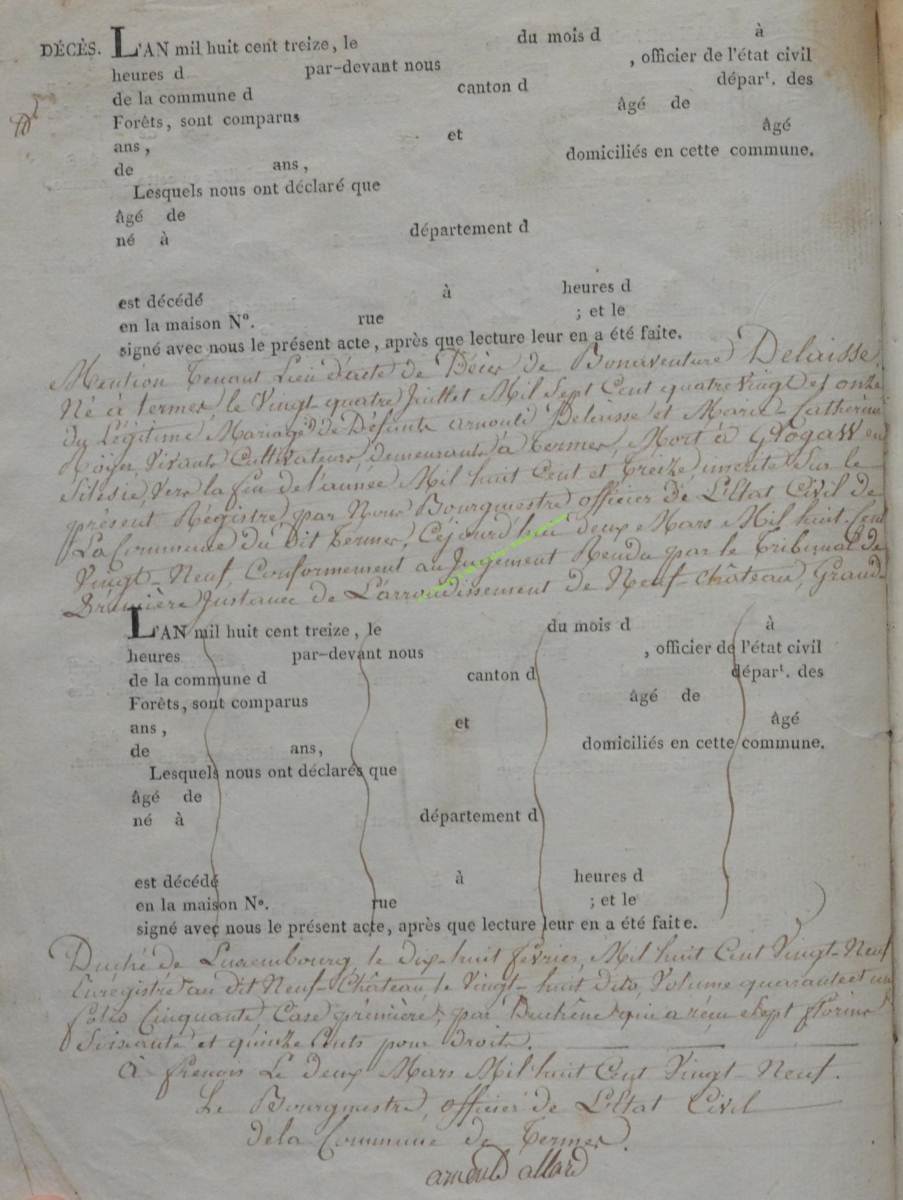 DÉCÈS. L'AN mil huit cent treize, le du mois d à
heures d par-devant nous , officier de l'état civil
de la commune d canton d départ. des
Forêts, sont comparus âgé de
ans, et âgé
de ans, domiciliés en cette commune.
Lesquels nous ont déclaré que
âgé de
né à département d
est décédé à heures d
en la maison N°. rue ; et le
signé avec nous le présent acte, après que lecture leur en a été faite.
Mention Tenant Lieu d'acte de Décès de Bonaventure Delaisse
Né à termes, le Vingt-quatre Juillet Mil Sept Cent quatre Vingt et onze
du Légitime Mariage de Défunts arnould Delaisse et Marie-Catherine
Royer, Vivants Cultivateurs, demeurants à Termes, Mort à Glogaw en
Silésie, Vers la fin de l'année Mil huit Cent et treize inscrite Sur le
présent Régistre par Nous Bourgmestre officier de L'Etat Civil de
La Commune du dit Termes, Cejourd'hui deux Mars Mil huit-Cent
Vingt-Neuf, Conformement au Jugement Rendu par le Tribunal de
Prémière Instance de L'arrondissement de Neuf-Château, Grand-
L'AN mil huit cent treize, le du mois d à
heures par-devant nous , officier de l'état civil
de la commune d canton d départ. des
Forêts, sont comparus âgé de
ans, et âgé
de ans, domiciliés en cette commune.
Lesquels nous ont déclarés que
âgé de
né à département d
est décédé à heures d
en la maison N°. rue ; et le
signé avec nous le présent acte, après que lecture leur en a été faite.
Duché de Luxembourg, le dix-huit février, Mil huit Cent Vingt-Neuf
Enregistré au dit Neuf-Château, le Vingt-huit dito, Volume quarante et un
folio Cinquante Case prémière, par Duchêne qui a réçu Sept florins
Soixante et quinze Cents pour Droits.
À frenois Le deux Mars Mil huit Cent Vingt-Neuf.
Le Bourgmestre, officier de L'Etat Civil
de la Commune de Termes.
arnould allard